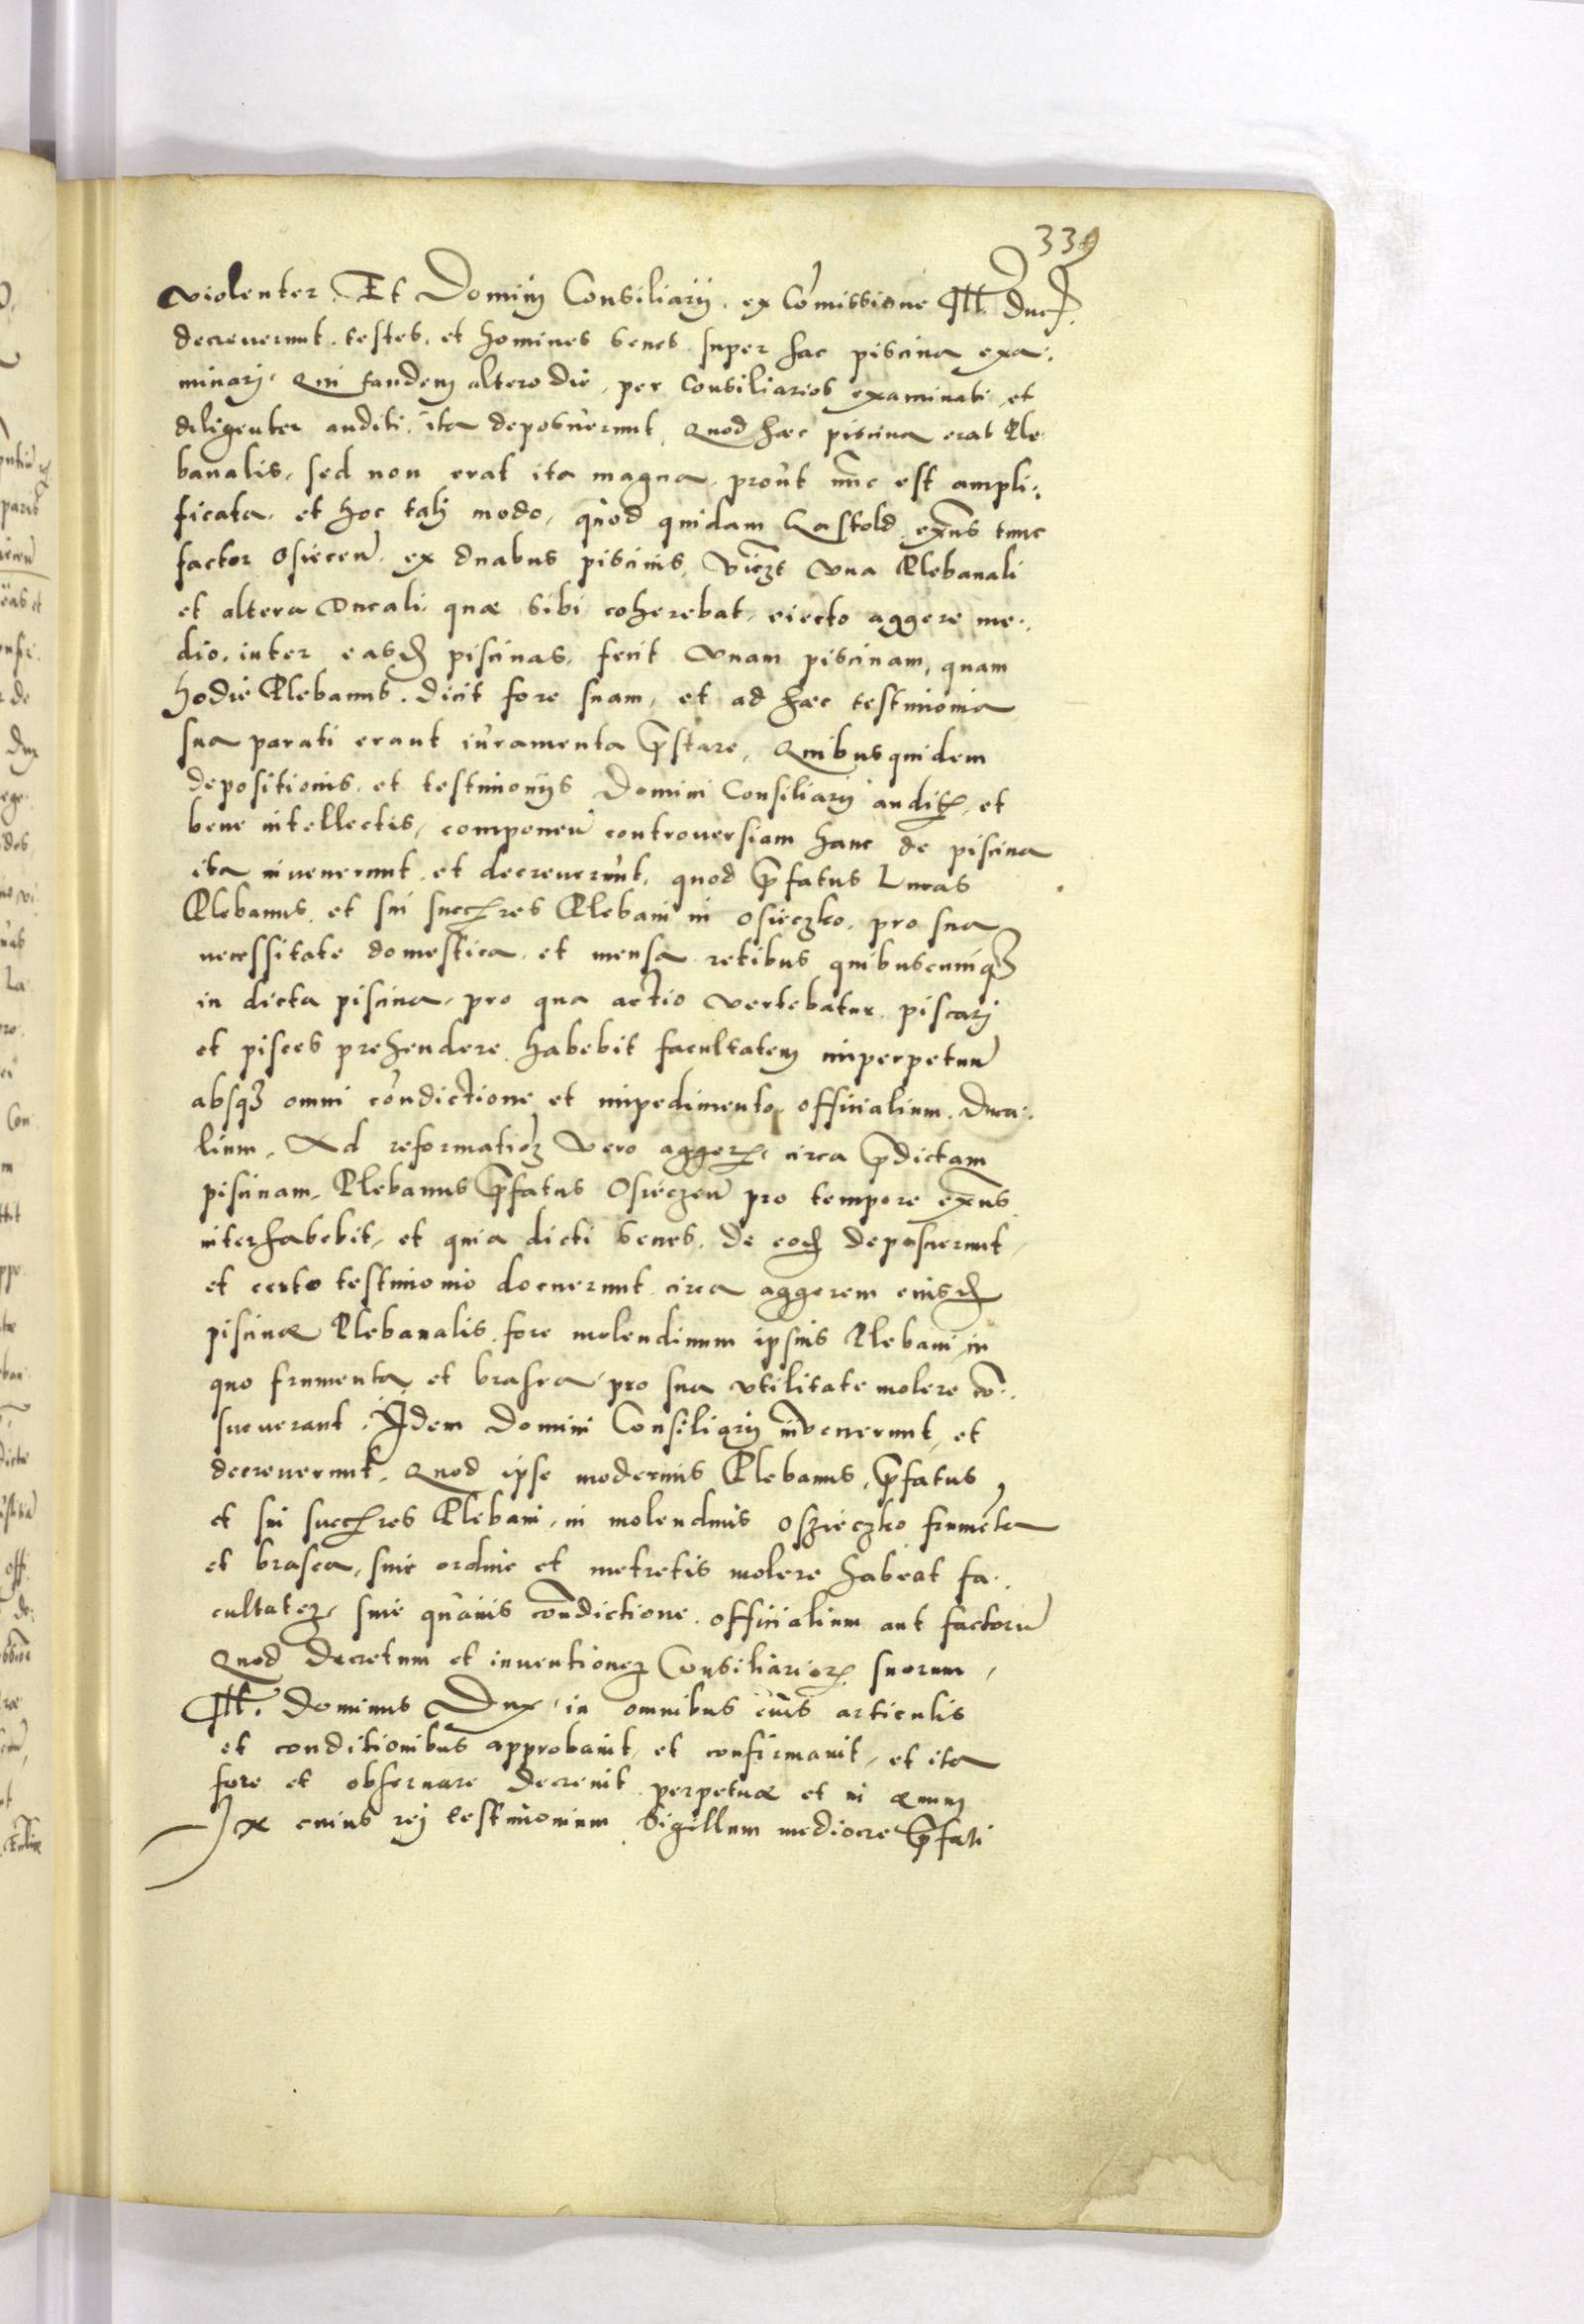 339
violenter. Et Dominj Consiliarij. ex Com̄issione Ill. Ducis.
decreuerunt. testes. et homines senes super hac piscina exa:
minarj. Qui tandem altero die, per Consiliarios examinati, et
diligenter auditi, ita deposuerunt, Quod haec piscina erat Ple-
banalis, sed non erat ita magna, prout nūc est ampli:
ficata, et hoc talj modo, quod quidam Gastold exn̄s tunc
factor Osiecen̄. ex duabus piscinis, vīczt vna Plebanali
et altera Ducali. quae sibi coherebat, eiecto aggere me:
dio. inter easd piscinas. fecit vnam piscinam, quam
hodie Plebanus. dicit fore suam, et ad haec testimonia
sua parati erant iuramenta p̄stare, Quibusquidem
depositionis et testimonijs Domini Consiliarij auditis, et
bene intellectis, componen̄ controuersiam hanc de piscina
ita inuenerunt et decreuerunt, quod p̄fatus Lucas
Plebanus et sui succ̄res Plebani in Osieczko. pro sua
necessitate domestica. et mensa retibus quibuscumqz
in dicta piscina, pro qua actio vertebatur piscarj
et pisces prehendere habebit facultatem imperpetuū
absqz omni condictione et impedimento officialium. Duca:
lium. Ad reformatioz vero aggerz circa p̄dictam
piscinam, Plebanus p̄fatus Osieczen̄ pro tempore exn̄s
interhabebit, et quia dicti senes. de eod deposuerunt,
et certo testimonio docuerunt circa aggerem eiusd
piscinae Plebanalis. fore molendinum ipsius Plebani, in
quo frumenta et brasea pro sua vtilitate molere cō:
sueuerant. Idem Domini Consiliarij inuenerunt, et
decreuerunt, Quod ipse modernus Plebanus, p̄fatus
et sui succ̄res Plebani, in molendinis Oszieczko frumēta
et brasea, sine ordine et metretis molere habeat fa:
cultatez, sine quauis condictione officialium aut factorū
Quod decretum et inuentionez Consiliariorz suorum,
Ill. Dominus Dux, in omnibus eius articulis
et conditionibus approbauit, et confirmauit, et ita
fore et obseruare decreuit perpetuae et in aeuum
In cuius rej testimonium Sigillum mediocre p̄fati